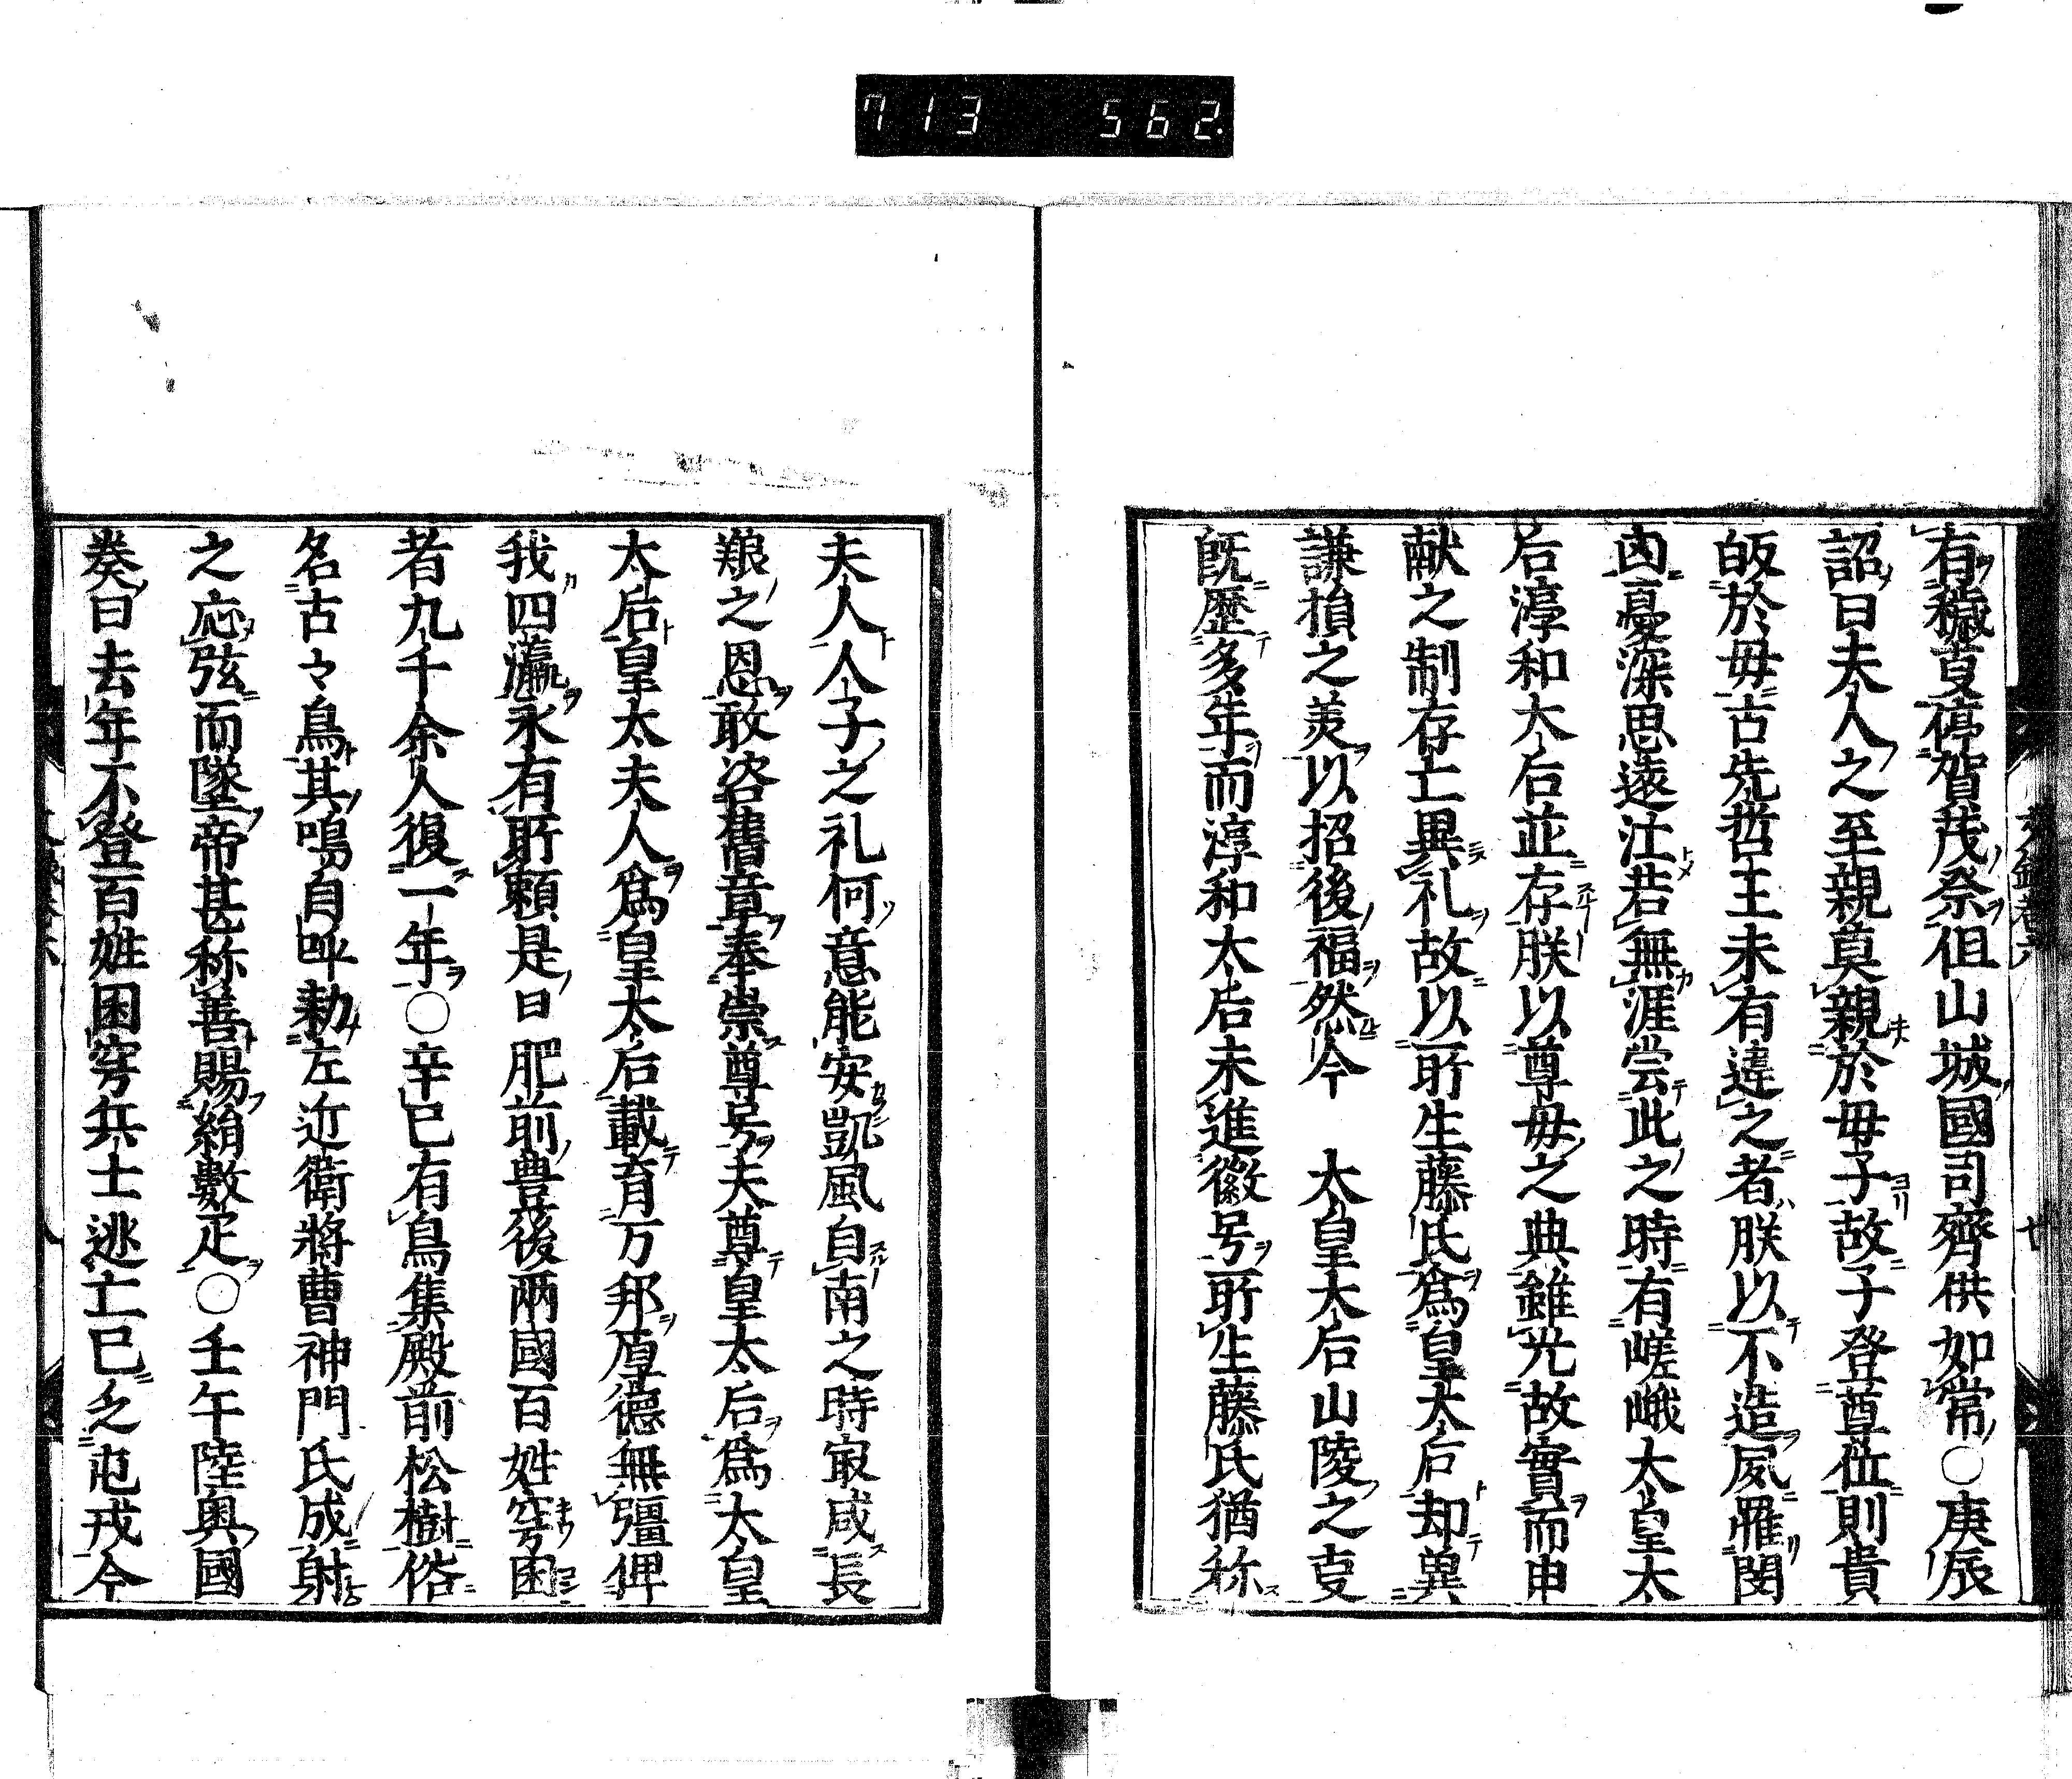 713 562.
有穢叓停賀茂祭但山城國司齊供如常○庚辰
詔曰夫人之至親莫親於母子故子登尊位則貴
皈於母古先哲王未有違之者朕以不造夙罹閔
凶憂深思遠泣若無涯當此之時有嵯峨太皇太
后淳和太后並存朕以尊母之典雖光故實而申
献之制存亡異礼故以所生藤氏為皇太后却異
謙損之美以招後福然今 太皇太后山陵之叓
旣歴多年而淳和太后未進徽号所生藤氏猶称
夫人人子之礼何意能安凱風自南之時㝡咸長
艱之恩敢咨舊章奉崇尊号夫尊皇太后為太皇
太后皇太夫人為皇太后載育万邦厚德無彊俾
我四瀛永有所頼是日肥前豊後兩國百姓窮困
者九千余人復一年○辛巳有鳥集殿前松樹俗
名古々鳥其鳴自呼勅左近衛將曹神門氏成射
之応弦而墜帝甚称善賜絹數疋○壬午陸奥國
奏曰去年不登百姓困窮兵士逃亡已乏屯戎今